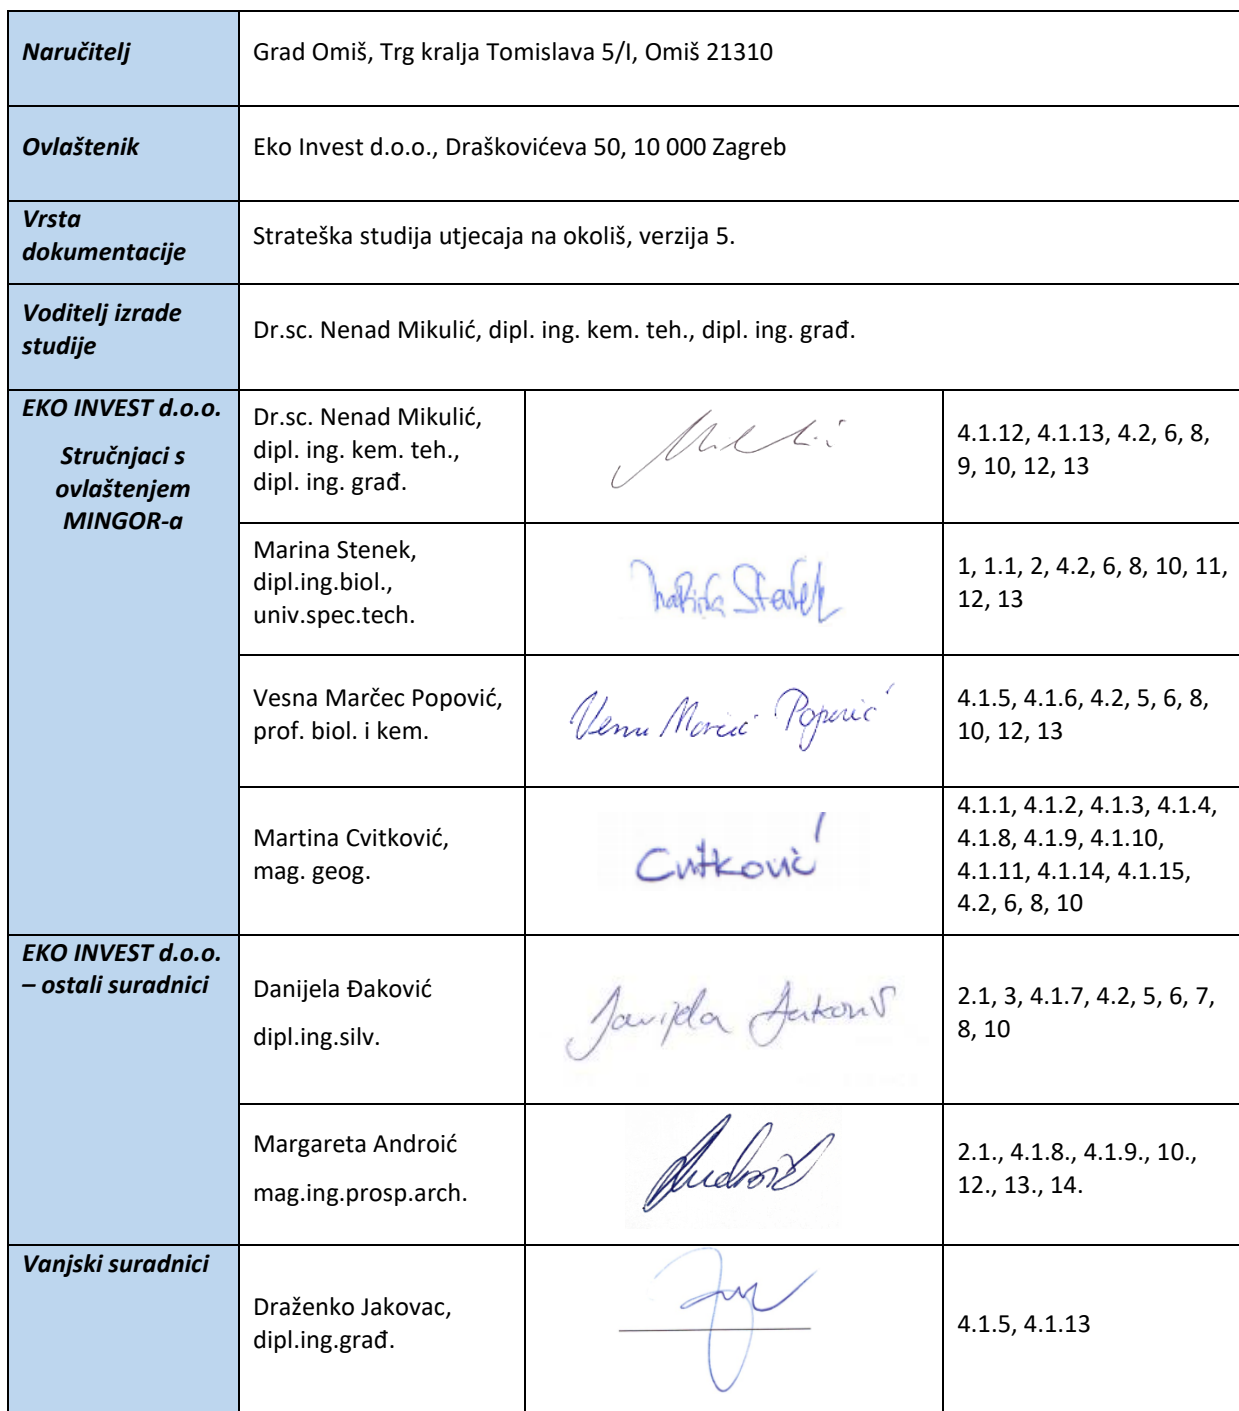 Naručitelj
Grad Omiš, Trg kralja Tomislava 5/I, Omiš 21310
Ovlaštenik
Eko Invest d.o.o., Draškovićeva 50, 10 000 Zagreb
Vrsta
dokumentacije
Strateška studija utjecaja na okoliš, verzija 5.
Voditelj izrade
studije
Dr.sc. Nenad Mikulić, dipl. ing. kem. teh., dipl. ing. građ.
EKO INVEST d.o.o.
Stručnjaci s
ovlaštenjem
MINGOR-a
Dr.sc. Nenad Mikulić,
dipl. ing. kem. teh.,
dipl. ing. građ.
4.1.12, 4.1.13, 4.2, 6, 8,
9, 10, 12, 13
Marina Stenek,
dipl.ing.biol.,
univ.spec.tech.
Marina Stenek
1, 1.1, 2, 4.2, 6, 8, 10, 11,
12, 13
Vesna Marčec Popović,
prof. biol. i kem.
Vesna Marčec Popović
4.1.5, 4.1.6, 4.2, 5, 6, 8,
10, 12, 13
Martina Cvitković,
mag. geog.
Cvitković
4.1.1, 4.1.2, 4.1.3, 4.1.4,
4.1.8, 4.1.9, 4.1.10,
4.1.11, 4.1.14, 4.1.15,
4.2, 6, 8, 10
EKO INVEST d.o.o.
– ostali suradnici
Danijela Đaković
dipl.ing.silv.
Danijela Đaković
2.1, 3, 4.1.7, 4.2, 5, 6, 7,
8, 10
Margareta Androić
mag.ing.prosp.arch.
Androić
2.1., 4.1.8., 4.1.9., 10.,
12., 13., 14.
Vanjski suradnici
Draženko Jakovac,
dipl.ing.građ.
4.1.5, 4.1.13